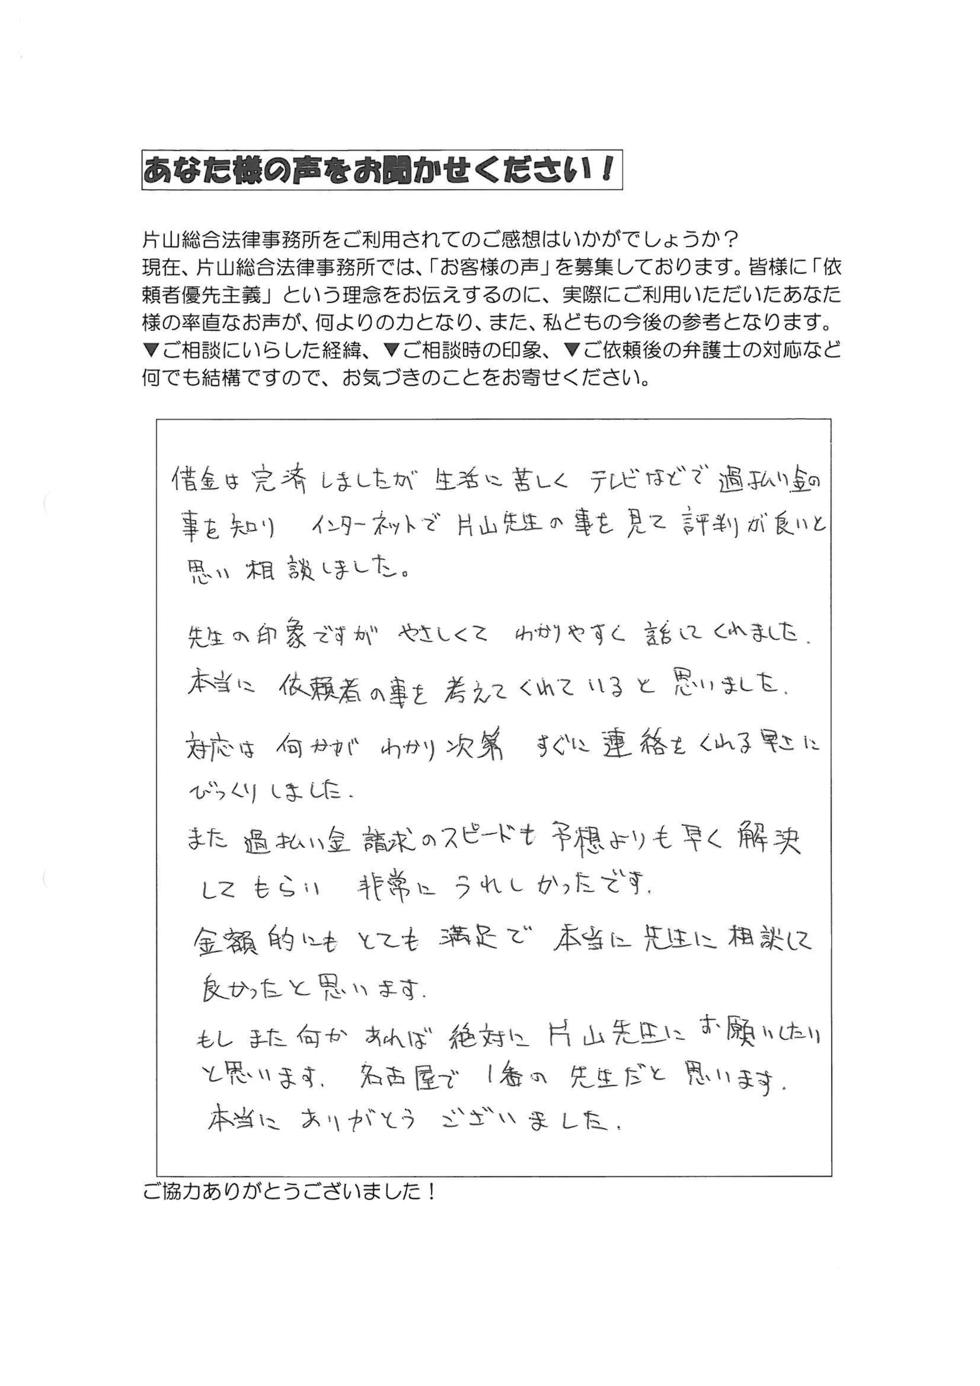 あなた様の声をお聞かせください！
片山総合法律事務所をご利用されてのご感想はいかがでしょうか？
現在、片山総合法律事務所では、「お客様の声」を募集しております。皆様に「依
頼者優先主義」という理念をお伝えするのに、実際にご利用いただいたあなた
様の率直なお声が、何よりの力となり、また、私どもの今後の参考となります。
▼ご相談にいらした経緯、▼ご相談時の印象、▼ご依頼後の弁護士の対応など
何でも結構ですので、お気づきのことをお寄せください。
借金は完済しましたが 生活に苦しく テレビなどで過払い金の
事を知り インターネットで片山先生の事を見て評判が良いと
思い相談しました。
先生の印象ですが やさしくて わかりやすく 話してくれました.
本当に 依頼者の事を 考えてくれていると 思いました.
対応は 何かが わかり次第 すぐに 連絡をくれる早さに
びっくりしました.
また 過払い金 請求のスピードも 予想よりも早く 解決
してもらい 非常に うれしかったです.
金額的にも とても 満足で 本当に 先生に 相談して
良かったと思います.
もし また何か あれば 絶対に 片山先生に お願いしたい
と思います. 名古屋で 1番の 先生だと 思います.
本当に ありがとう ございました.
ご協力ありがとうございました！